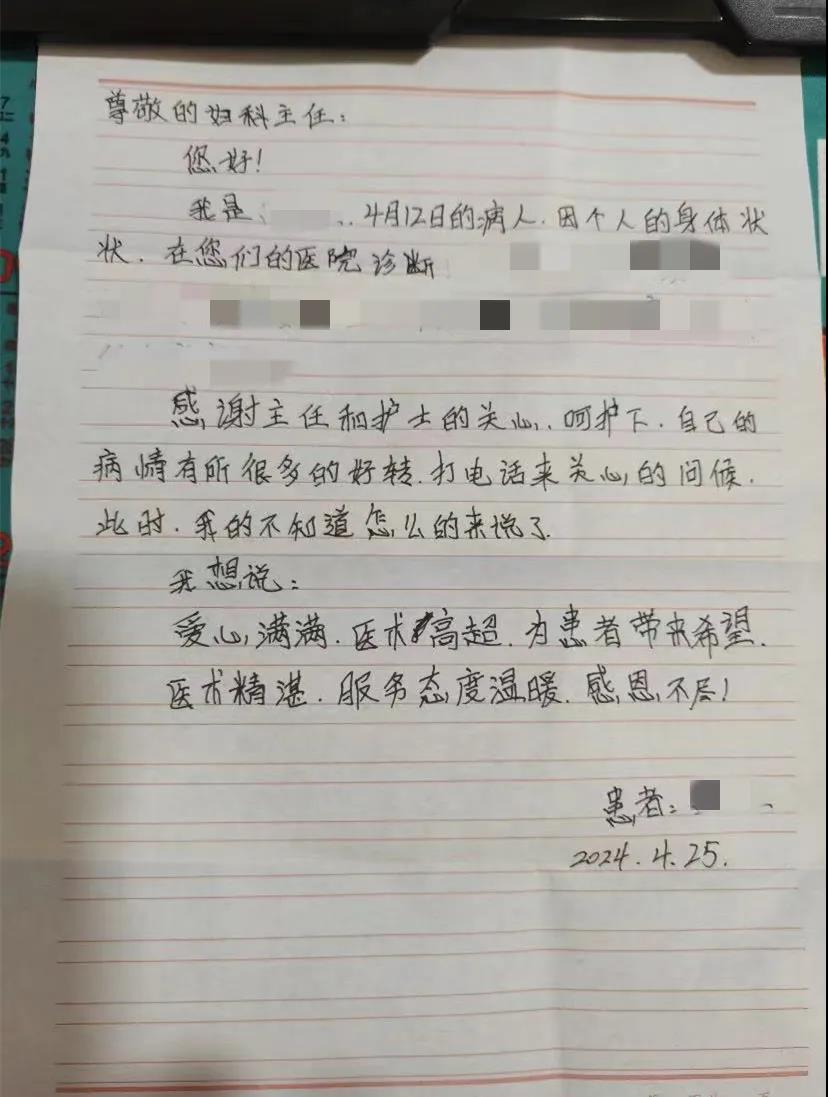 尊敬的妇科主任:
您好!
我是 4月12日的病人.因个人的身体状
状.在您们的医院诊断
感谢主任和护士的关心.呵护下.自己的
病情有所很多的好转.打电话来关心的问候.
此时.我的不知道怎么的来说了.
我想说:
爱心满满.医术高超.为患者带来希望.
医术精湛.服务态度温暖.感恩不尽!
患者:
2024.4.25.